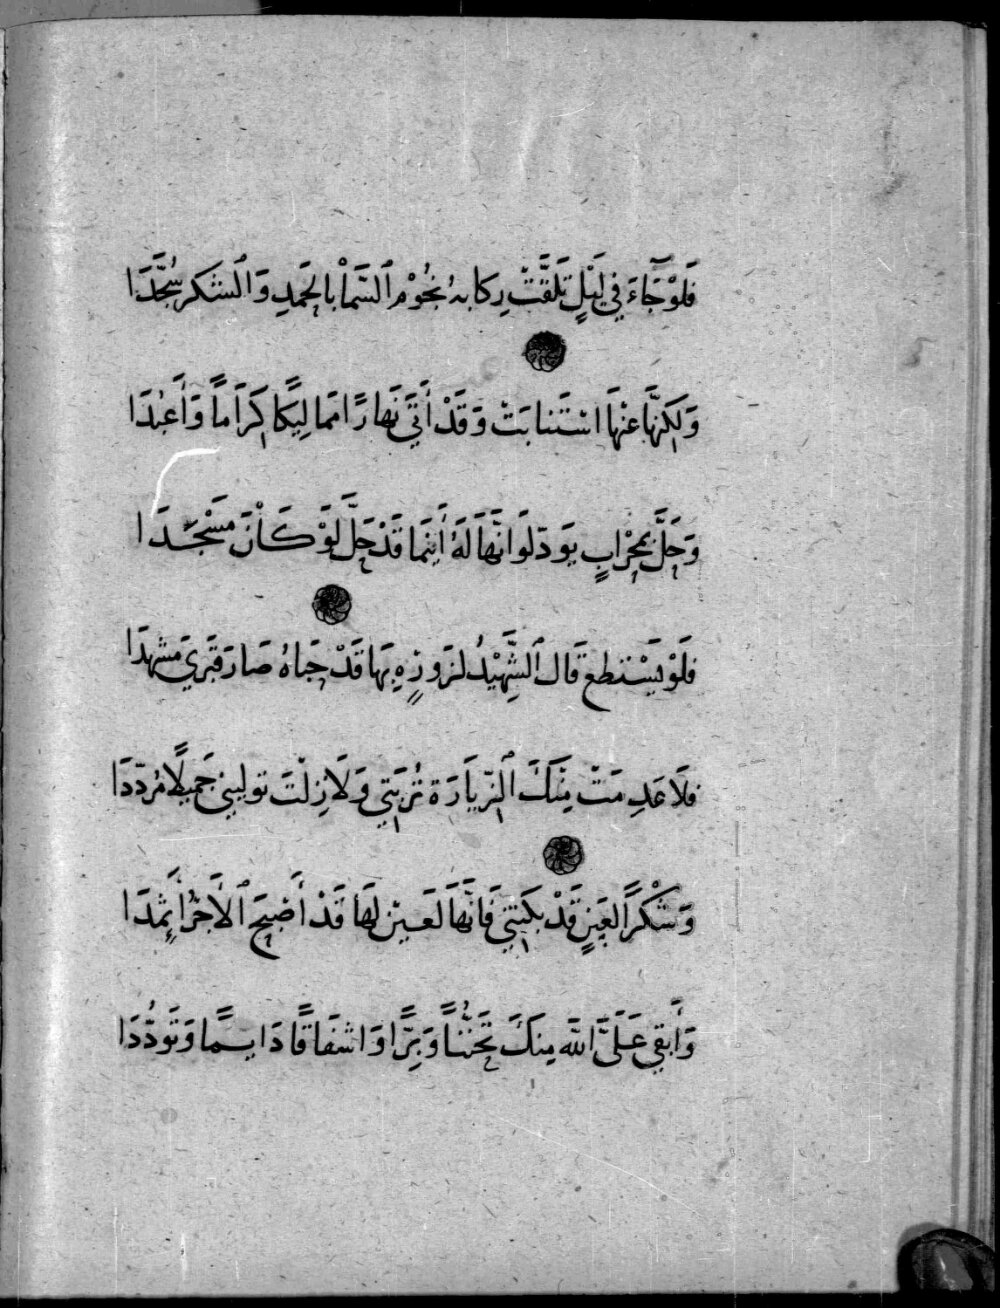 فَلَوْ جَآءَ فِي لَيْلٍ تَلَقَّتْ رِكَابَهُ نُجُوْمُ ٱلسَّمَاْ بِالْحَمْدِ وَٱلشُكرِ سُجَّدَا
وَلَكِنَّهَا عَنْهَا اسْتَنَابَتْ وَقَدْ أَتَى نَهَارًا مَمَالِيكًا كِرَامًا وَأَعْبُدَا
وَحَلَّ بِمِحْرَابٍ يَوَدّ لَوَانَّهَا لَهُ أَيْنَمَا قَدْ حَلَّ لَوْ كَاْنَ مَسْجِدَا
فَلَوْ يَسْتَطِع قَالَ ٱلشَّهِيْدُ لزَوْرَةٍ بِهَا قَدْ حَبَاهُ صَارَ قَبْرِيَ مَشْهَدَا
فَلَا عَدِمَتْ مِنْكَ ٱلزِّيَارَةَ تُرْبَتِي وَلَا زِلْتَ تولِينِي جَمِيْلًا مُرَدّدَا
وَشُكْرًا لِعَيْنٍ قَدْ بَكَتْنِي فَانَّهَا لَعَيْن لَهَا قَدْ أَصْبَحَ ٱلْأَجْرُ أَثْمِدَا
وَأَبْقَى عَلَيَّ اللهُ مِنكَ تَحَنُّنًا وَبِرًّا وَاشْفَاقًا دَايِمًا وَتَوَدُّدَا